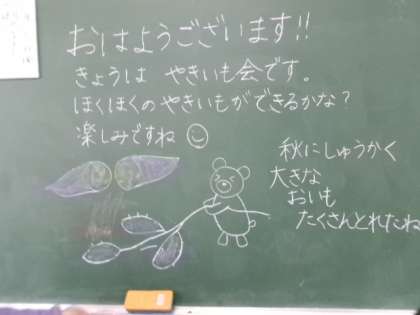 おはようございます!!
きょうは やきいも会です。
ほくほくのやきいもができるかな?
楽しみですね
秋にしゅうかく
大きな
おいも
たくさんとれたね